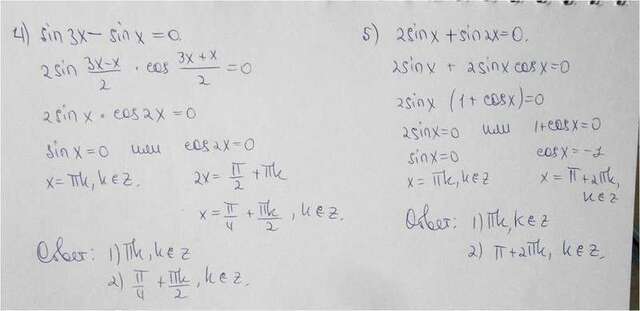 4) sin 3x - sin x = 0.
2 sin (3x-x)/2 · cos (3x+x)/2 = 0
2 sin x · cos 2x = 0
sin x = 0 или cos 2x = 0
x = πk, k∈z. 2x = π/2 + πk
x = π/4 + πk/2, k∈z.
Ответ: 1) πk, k∈z
2) π/4 + πk/2, k∈z.
5) 2 sin x + sin 2x = 0.
2 sin x + 2 sin x cos x = 0
2 sin x (1 + cos x) = 0
2 sin x = 0 или 1 + cos x = 0
sin x = 0 cos x = -1
x = πk, k∈z x = π + 2πk,
k∈z
Ответ: 1) πk, k∈z
2) π + 2πk, k∈z.